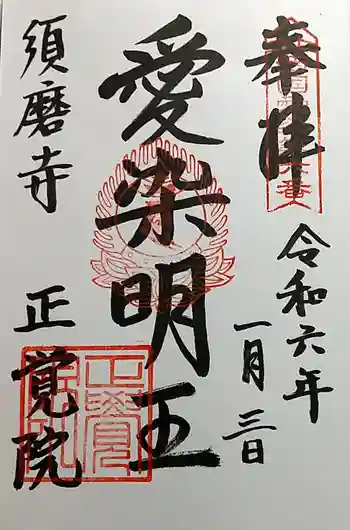 奉拝
令和六年
一月三日
愛染明王
須磨寺
正覚院